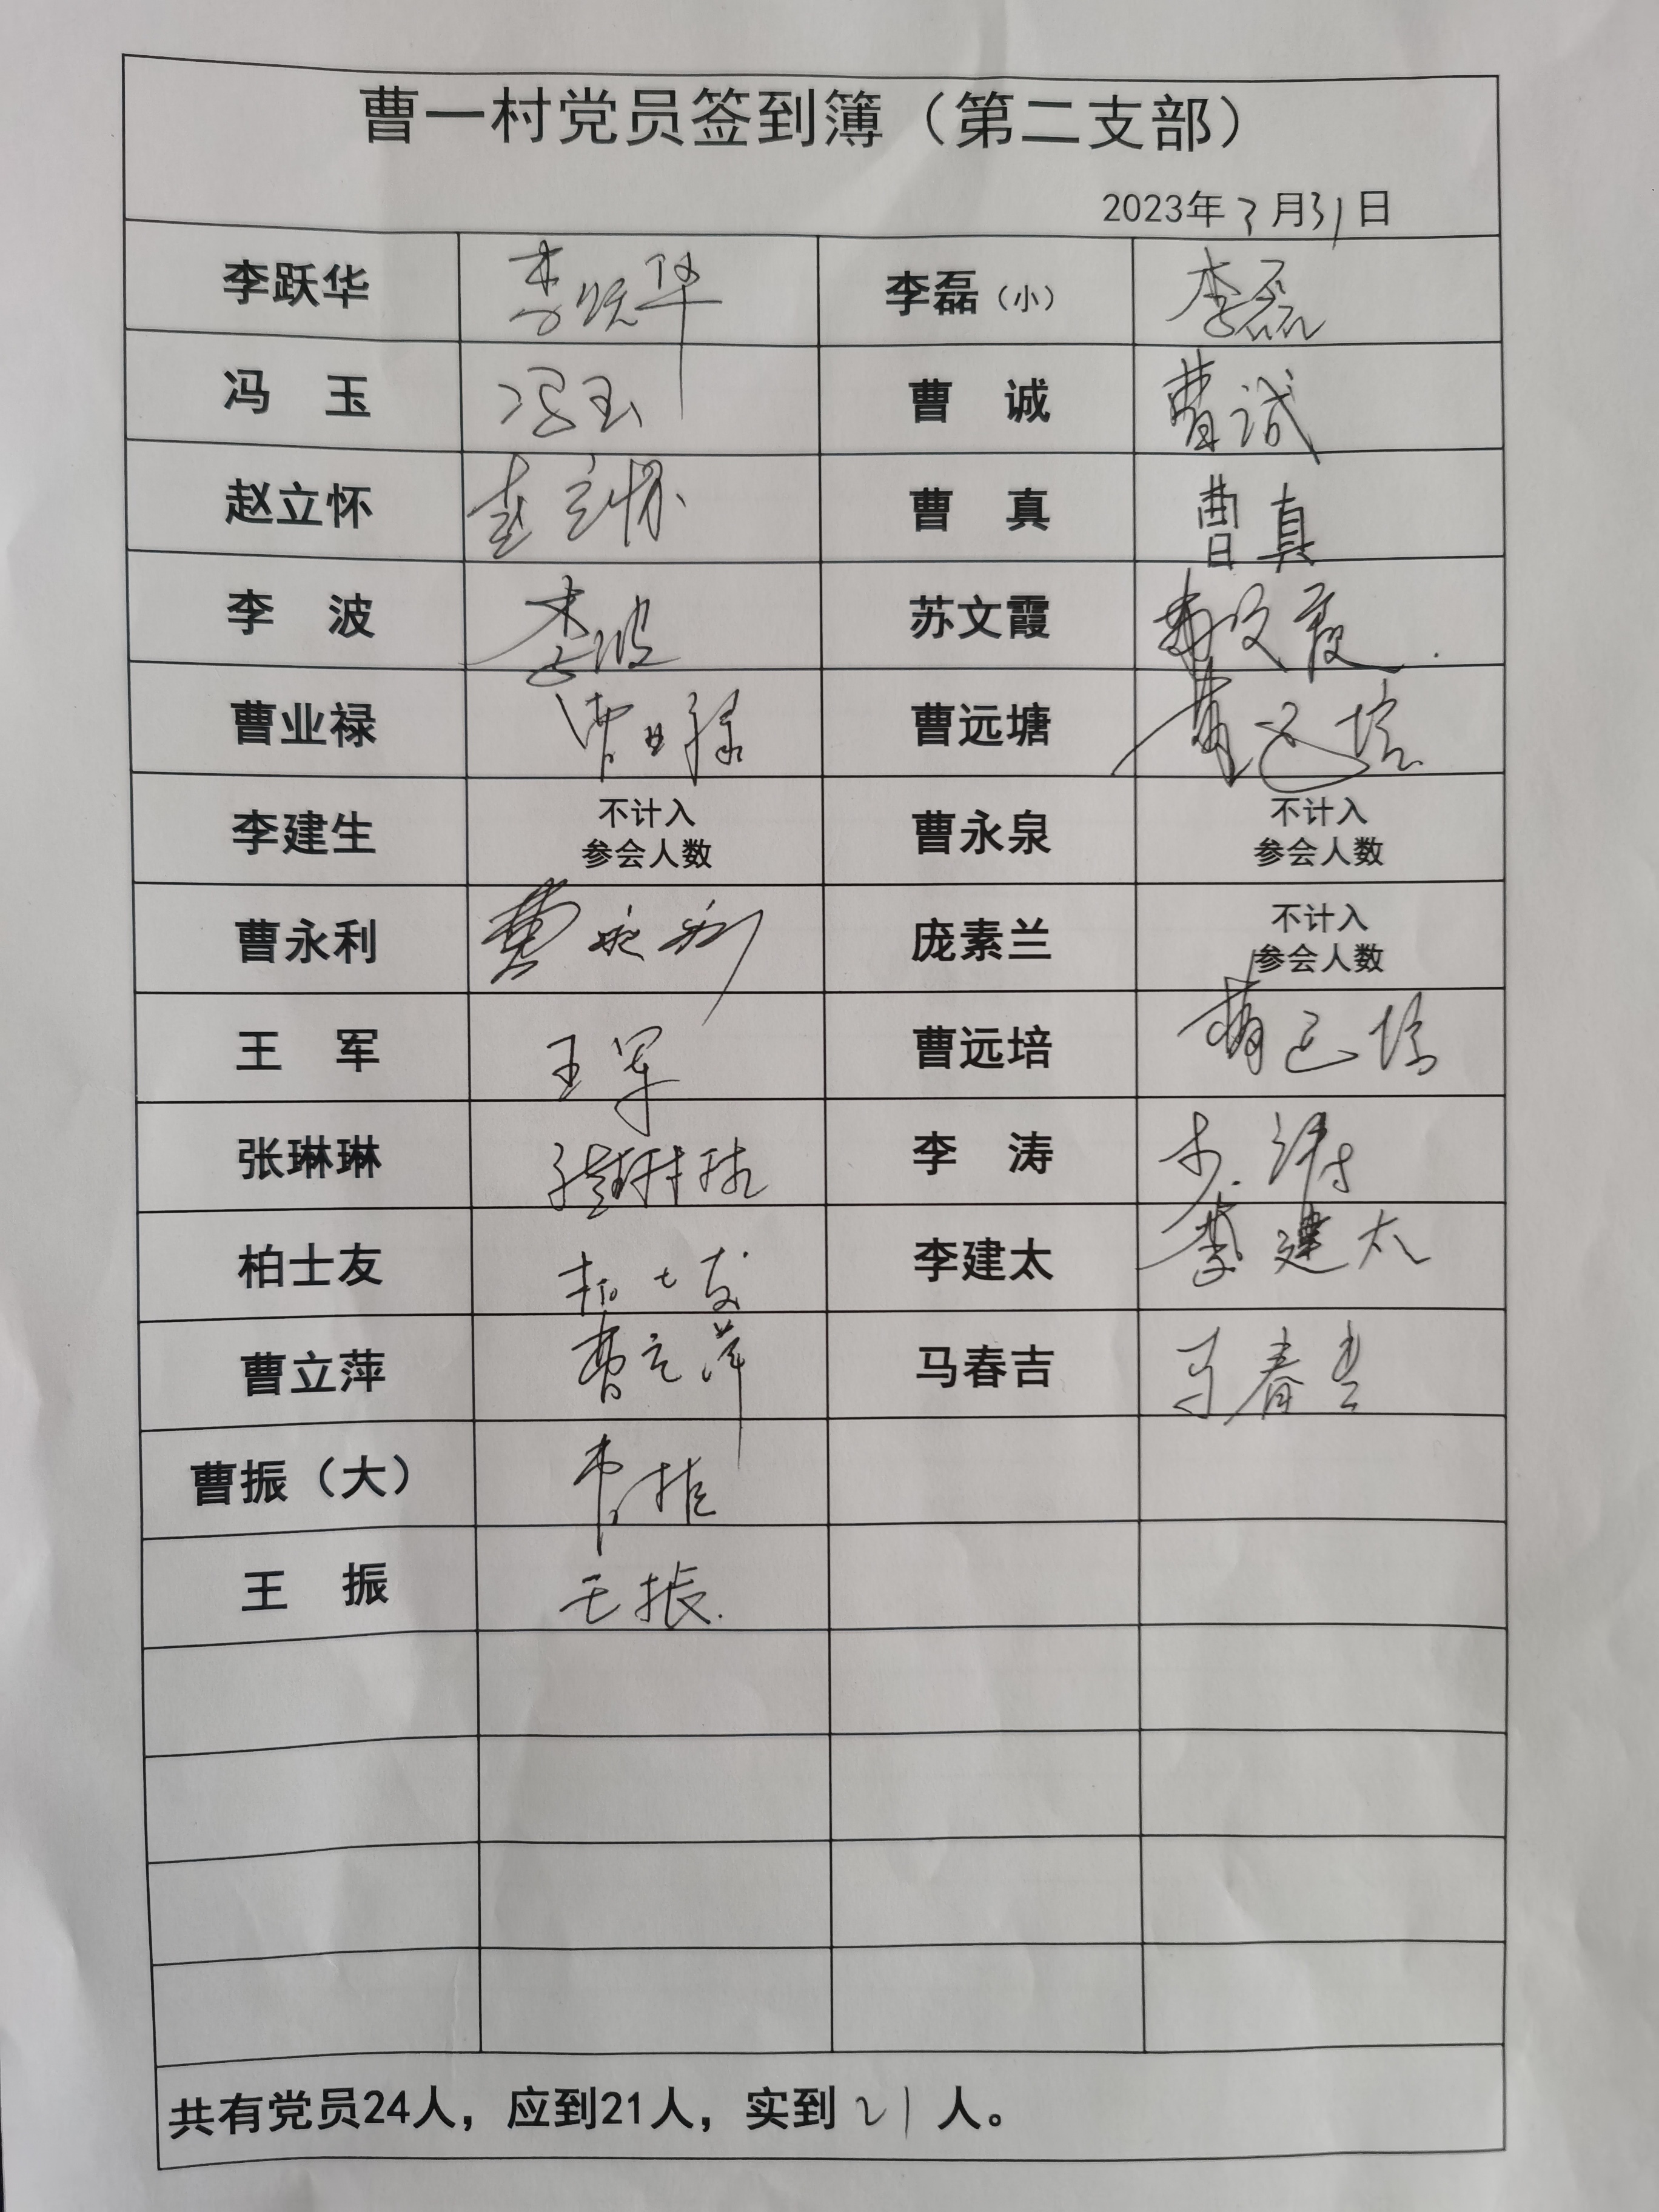 曹一村党员签到簿（第二支部）
2023年3月31日
李跃华 李跃华 李磊（小） 李磊
冯 玉 冯玉 曹 诚 曹诚
赵立怀 赵立怀 曹 真 曹真
李 波 李波 苏文霞 苏文霞
曹业禄 曹业禄 曹远塘 曹远塘
李建生 不计入 曹永泉 不计入
参会人数 参会人数
曹永利 曹永利 庞素兰 不计入
参会人数
王 军 王军 曹远培 曹远培
张琳琳 张琳琳 李 涛 李涛
柏士友 柏士友 李建太 李建太
曹立萍 曹立萍 马春吉 马春吉
曹振（大） 曹振
王 振 王振
共有党员24人，应到21人，实到21人。